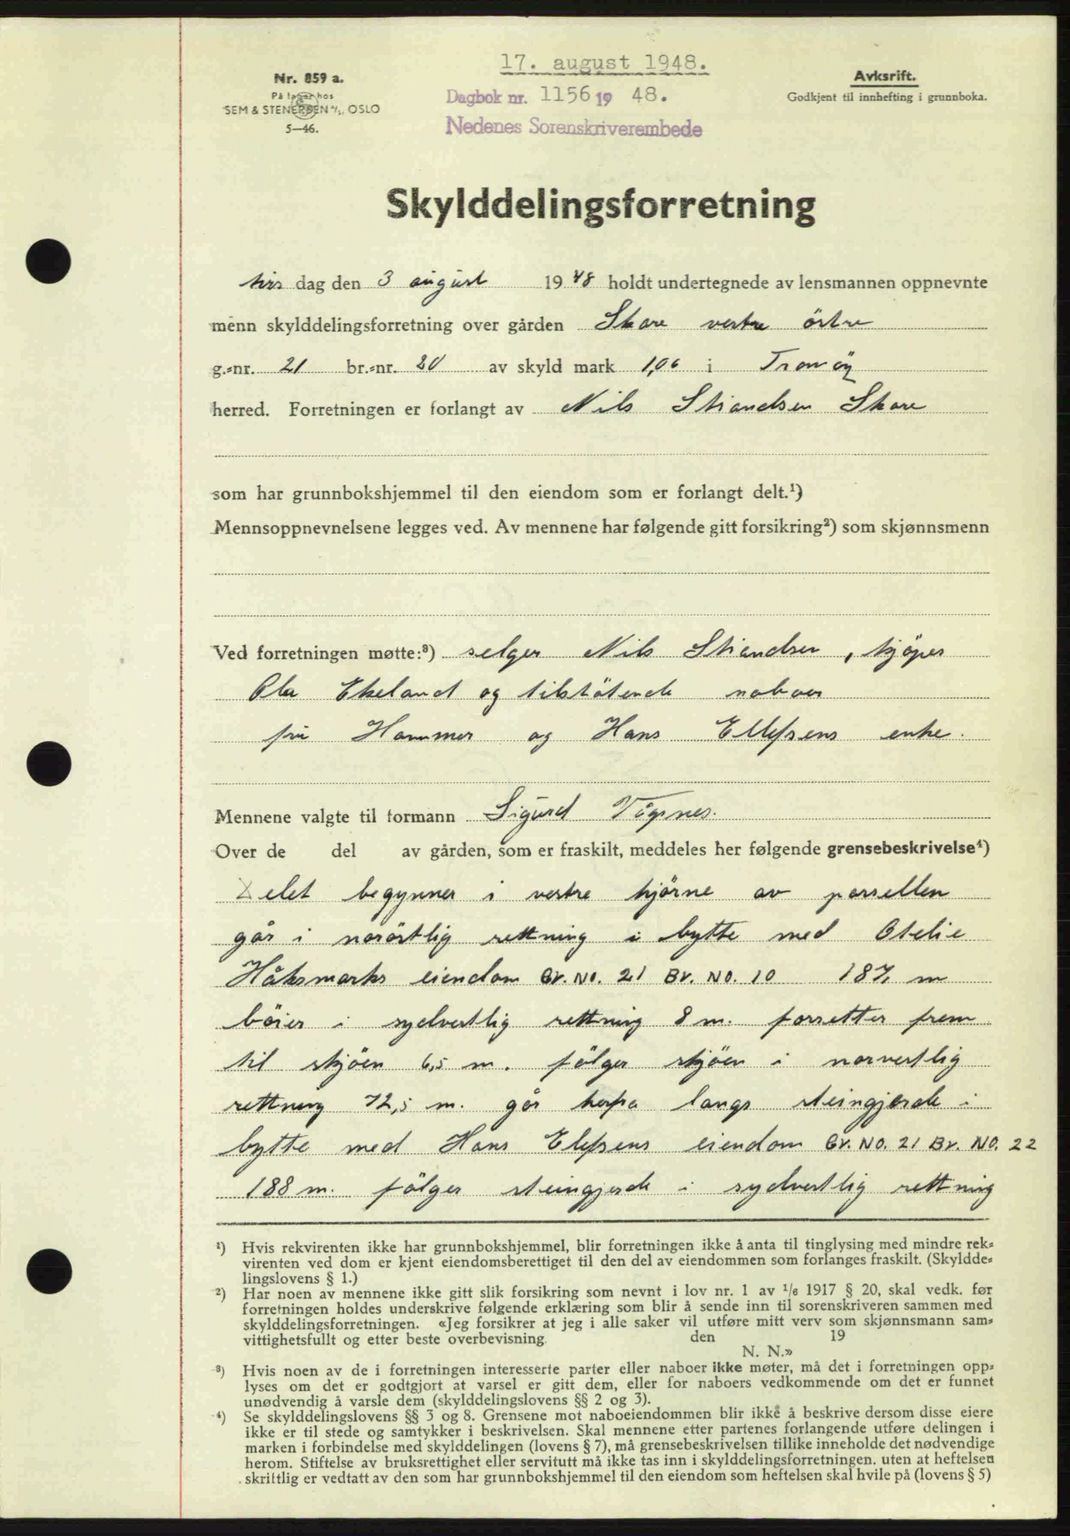 17. august 1948.
Nr. 859 a.
På lager hos
SEM & STENERSEN A/S, OSLO
5—46.
Dagbok nr. 1156 19 48.
Nedenes Sorenskriverembede
Avkrift.
Godkjent til innhefting i grunnboka.
Skylddelingsforretning
tirs dag den 3 august 1948 holdt undertegnede av lensmannen oppnevnte
menn skylddelingsforretning over gården Skare vestre östre
g.-nr. 21 br.-nr. 80 av skyld mark 1,06 i Tromöy
herred. Forretningen er forlangt av Nils Skare
som har grunnbokshjemmel til den eiendom som er forlangt delt.¹)
Mennsoppnevnelsene legges ved. Av mennene har følgende gitt forsikring²) som skjønnsmenn
Ved forretningen møtte:³) selger Nils, kjöper
Ola Ekeland og tilstötende naboer
fru Hammer og Hans Ellefsens enke.
Mennene valgte til formann Sigurd Vågsnes.
Over de del av gården, som er fraskilt, meddeles her følgende grensebeskrivelse⁴)
Delet begynner i vestre hjörne av parsellen
går i norörstlig rettning i bytte med Otelie
eiendom Gr. No. 21 Br. No. 10 187, m
böier i sydvestlig rettning 8 m. forsetter frem
til sjöen 6,5 m. fölger sjöen i norvestlig
rettning 72,5 m. går herfra langs steingjerde i
bytte med Hans Elefsens eiendom Gr. No. 21 Br. No. 22
188 m. fölger steingjerde i sydvestlig rettning
¹) Hvis rekvirenten ikke har grunnbokshjemmel, blir forretningen ikke å anta til tinglysing med mindre rek-
virenten ved dom er kjent eiendomsberettiget til den del av eiendommen som forlanges fraskilt. (Skyldde-
lingslovens § 1.)
²) Har noen av mennene ikke gitt slik forsikring som nevnt i lov nr. 1 av 1/6 1917 § 20, skal vedk. før
forretningen holdes underskrive følgende erklæring som blir å sende inn til sorenskriveren sammen med
skylddelingsforretningen. «Jeg forsikrer at jeg i alle saker vil utføre mitt verv som skjønnsmann sam-
vittighetsfullt og etter beste overbevisning den 19
N. N.»
³) Hvis noen av de i forretningen interesserte parter eller naboer ikke møter, må det i forretningen opp-
lyses om det er godtgjort at varsel er gitt dem, eller for naboers vedkommende om det er funnet
unødvendig å varsle dem (skylddelingslovens §§ 2 og 3).
⁴) Se skylddelingslovens §§ 3 og 8. Grensene mot naboeiendommen blir ikke å beskrive dersom disse eiere
ikke er til stede og samtykker i beskrivelsen. Skal mennene etter partenes forlangende utføre delingen i
marken i forbindelse med skylddelingen (lovens § 7), må grensebeskrivelsen tillike inneholde det nødvendige
herom. Stiftelse av bruksrettighet eller servitutt må ikke tas inn i skylddelingsforretningen. uten at heftelsen
skriftlig er vedtatt av den som har grunnbokshjemmel til den eiendom som heftelsen skal hvile på (lovens § 5)